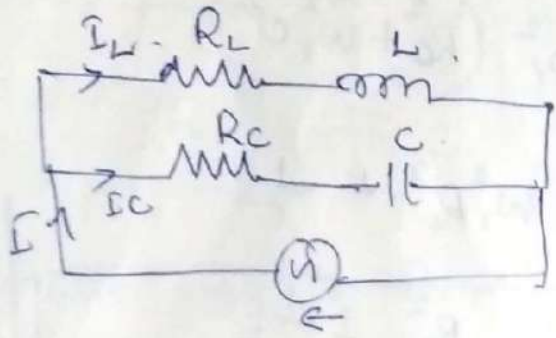 I_L R_L L
R_C C
I_C
I